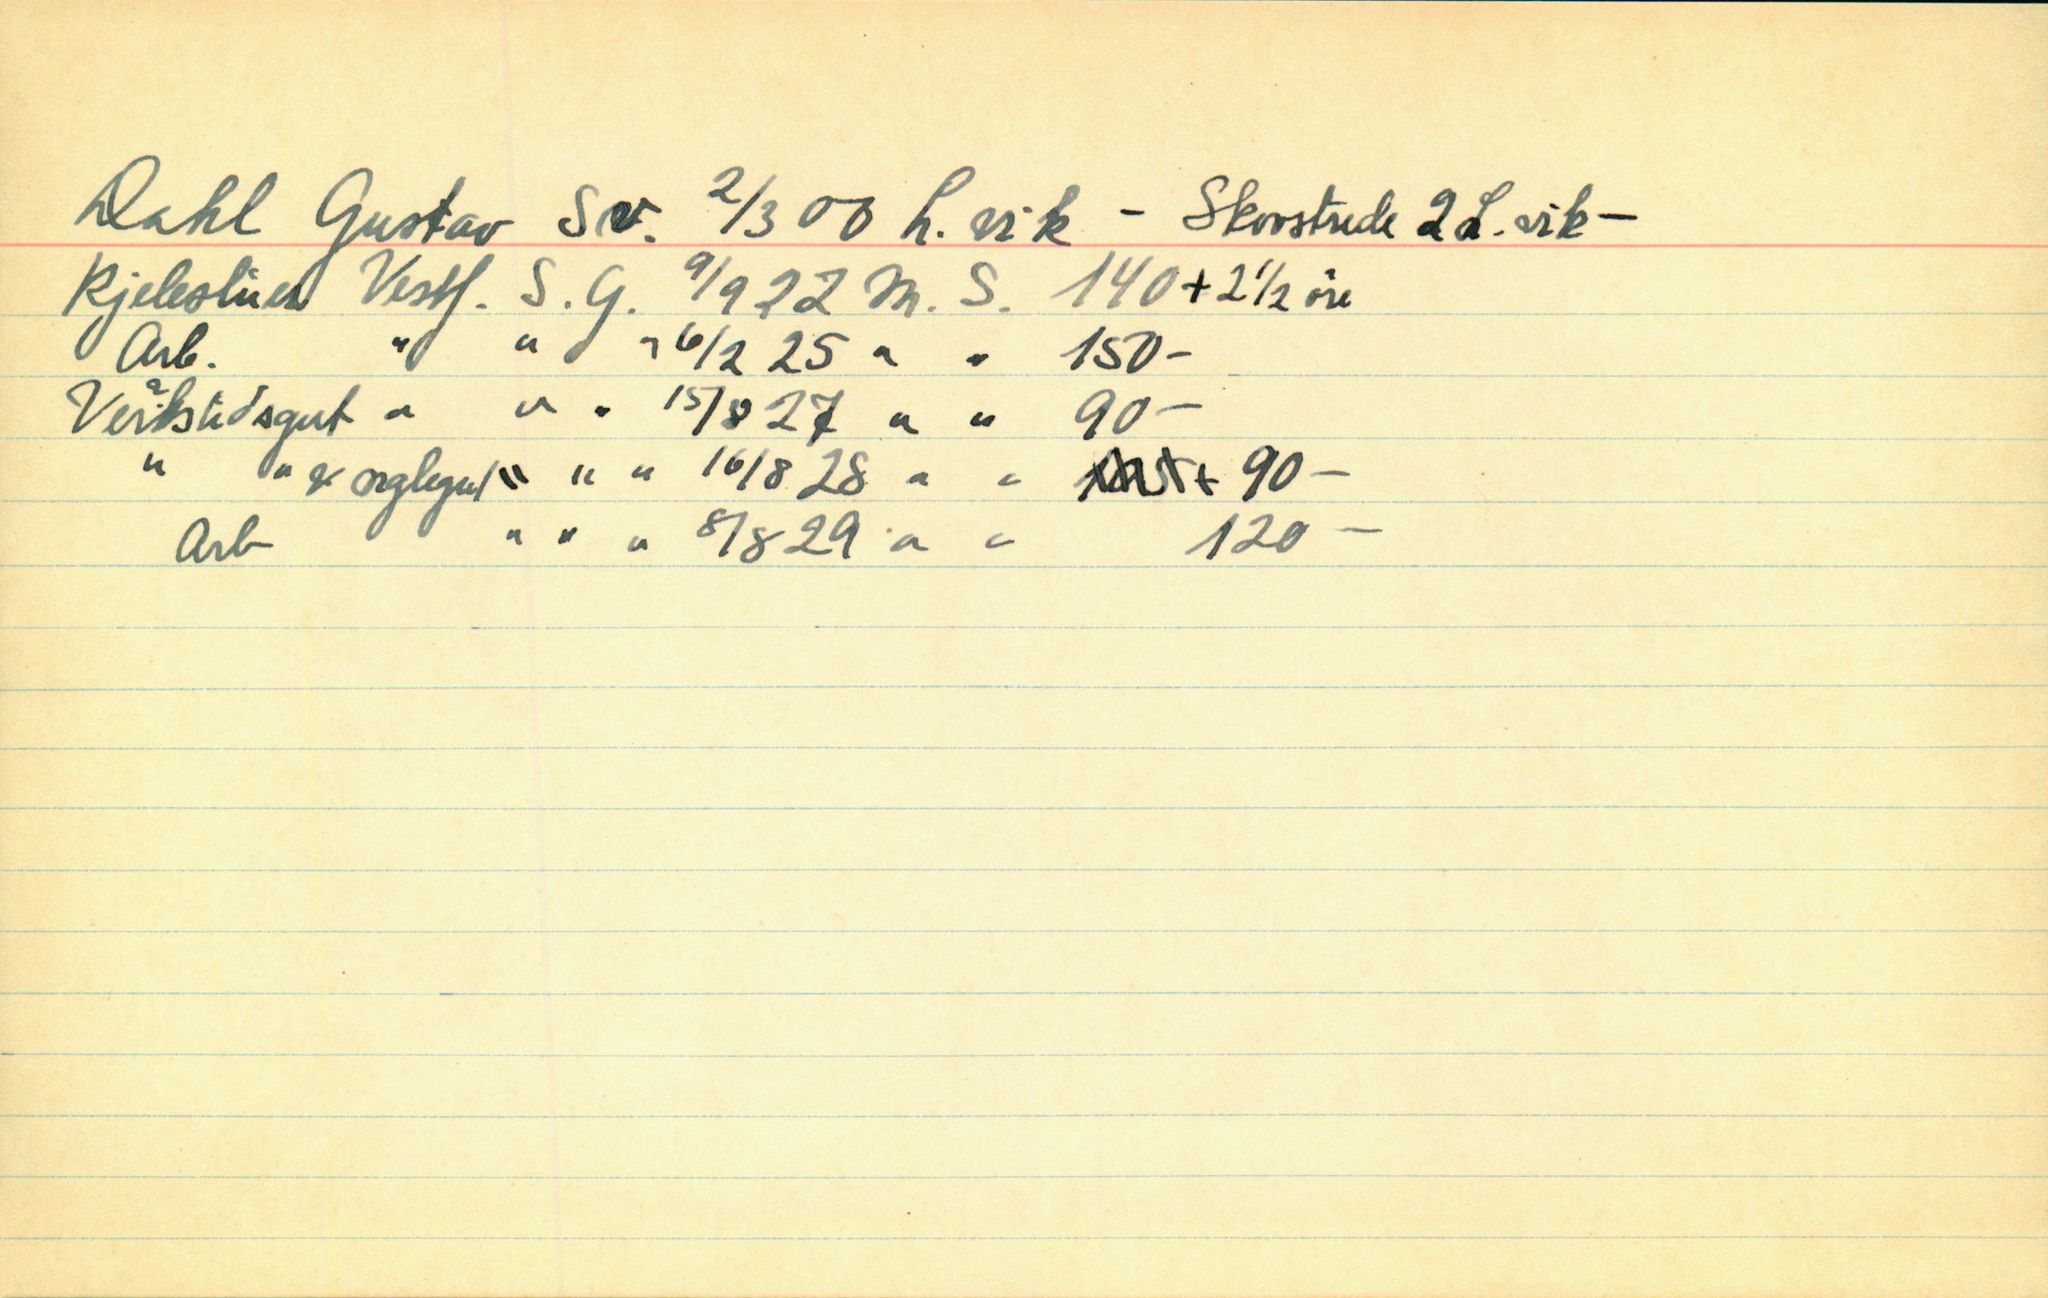 Dahl Gustav Sv. 2/3 00 L. vik - Skovstrede 2 L. vik -
Kjelestuer Vestf. S. G. 9/9 22 M. S. 140 + 2 1/2 øre
Arb. " " " 6/2 25 " " 150 -
Verkstedsgut " " " 15/8 27 " " 90 -
" " & " " " 16/8 28 " " + 90 -
Arb " " " 8/8 29 " " 120 -